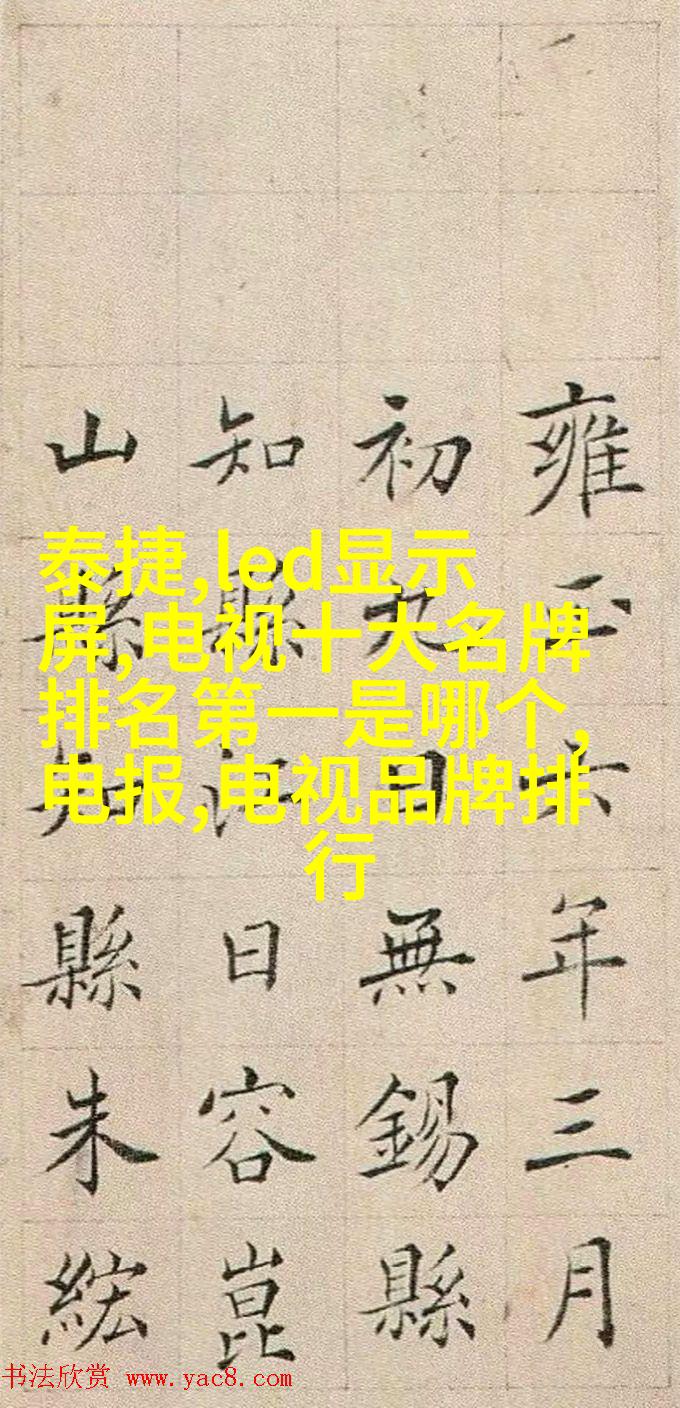 雍正六年三月
初九日無錫縣
知縣江日容崑
山縣知縣朱
泰捷,led显示
屏,电视十大名牌
排名第一是哪个,
电报,电视品牌排
行
书法欣赏 www.yac8.com